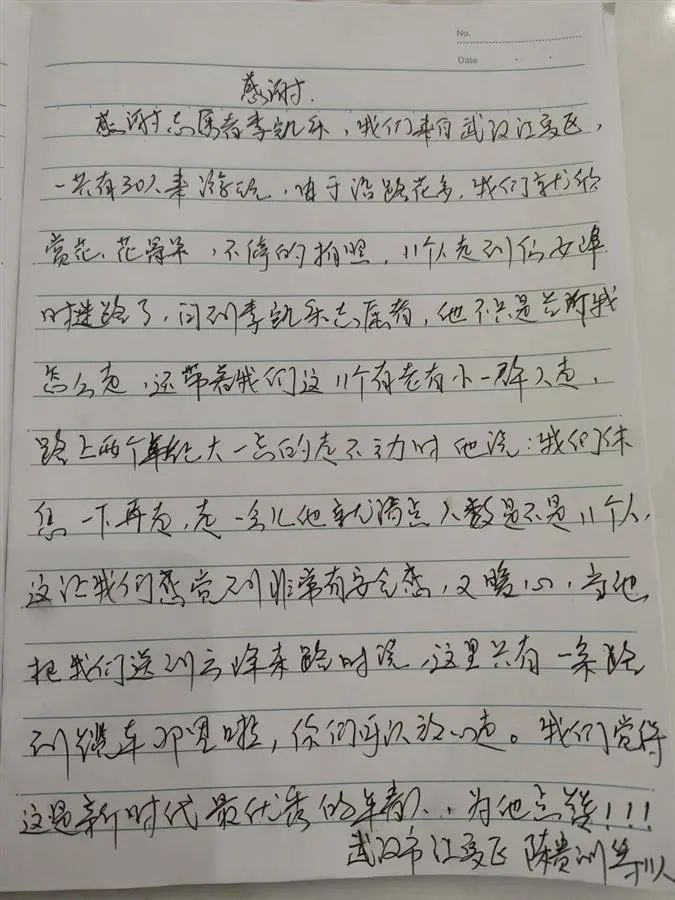 No.
Date
感谢
感谢志愿者李凯乐，我们来自武汉江夏区，
一共有30人来游玩，由于沿路花多，我们就
赏花、花骨朵，不停的拍照，11个人走到仙女
时迷路了，问到李凯乐志愿者，他不只是告诉我
怎么走，还带着我们这11个有老有小一群人走，
路上两个年纪大一点的走不动时他说：我们休
息一下再走，走一会儿他就清点人数是不是11个人，
这让我们感觉到非常有安全感，又暖心，当他
把我们送到云峰来路时说，这里只有一条路
到缆车那里啦，你们可以放心走。我们觉得
这是新时代最优秀的年青人，为他点赞！！！
武汉市江夏区 陈贵训等11人